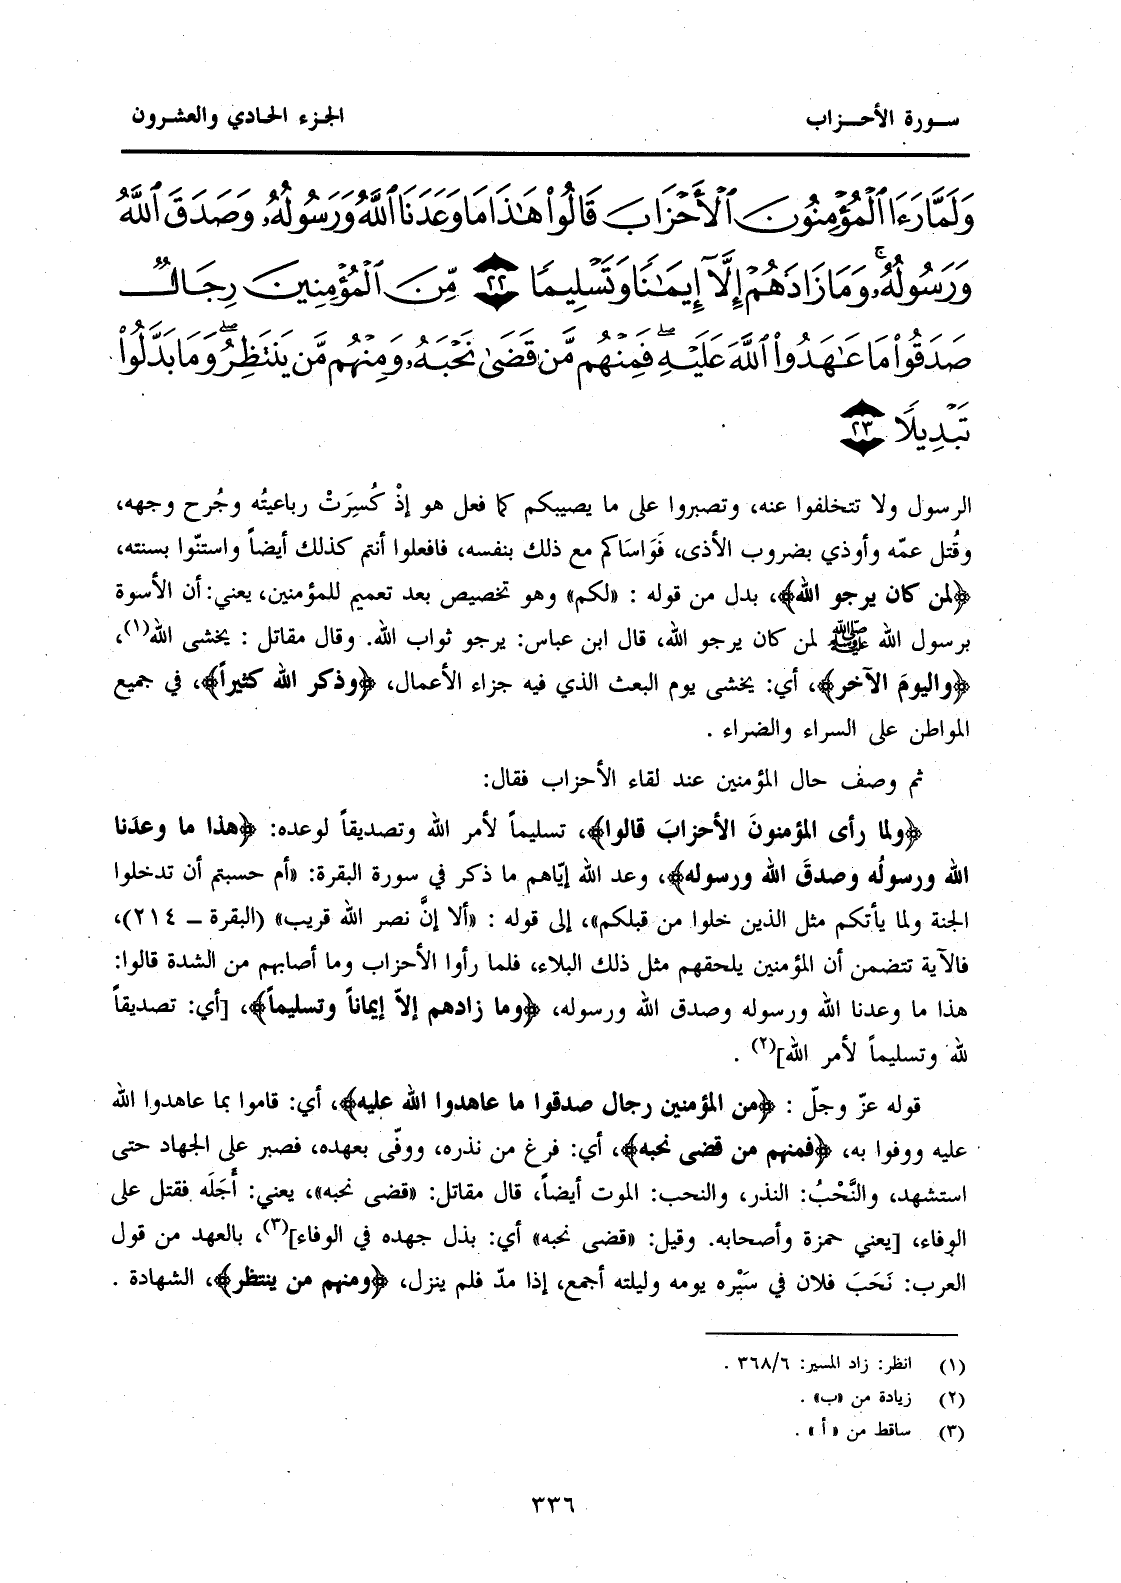 سورة الأحزاب
الجزء الحادي والعشرون
وَلَمَّا رَءَا ٱلْمُؤْمِنُونَ ٱلْأَحْزَابَ قَالُوا۟ هَـٰذَا مَا وَعَدَنَا ٱللَّهُ وَرَسُولُهُۥ وَصَدَقَ ٱللَّهُ
وَرَسُولُهُۥۚ وَمَا زَادَهُمْ إِلَّآ إِيمَـٰنًا وَتَسْلِيمًا ٢٢ مِّنَ ٱلْمُؤْمِنِينَ رِجَالٌ
صَدَقُوا۟ مَا عَـٰهَدُوا۟ ٱللَّهَ عَلَيْهِۖ فَمِنْهُم مَّن قَضَىٰ نَحْبَهُۥ وَمِنْهُم مَّن يَنتَظِرُۖ وَمَا بَدَّلُوا۟
تَبْدِيلًا ٢٣
الرسول ولا تتخلفوا عنه، وتصبروا على ما يصيبكم كما فعل هو إذْ كُسِرَتْ رباعيتُه وجُرح وجهه،
وقُتل عمّه وأوذي بضروب الأذى، فَوَاسَاكم مع ذلك بنفسه، فافعلوا أنتم كذلك أيضاً واستنّوا بسنته،
﴿لمن كان يرجو الله﴾، بدل من قوله : «لكم» وهو تخصيص بعد تعميم للمؤمنين، يعني: أن الأسوة
برسول الله ﷺ لمن كان يرجو الله، قال ابن عباس: يرجو ثواب الله. وقال مقاتل : يخشى الله(١)،
﴿واليومَ الآخر﴾، أي: يخشى يوم البعث الذي فيه جزاء الأعمال، ﴿وذكر الله كثيراً﴾، في جميع
المواطن على السراء والضراء .
ثم وصف حال المؤمنين عند لقاء الأحزاب فقال:
﴿ولما رأى المؤمنونَ الأحزابَ قالوا﴾، تسليماً لأمر الله وتصديقاً لوعده: ﴿هذا ما وعدَنا
الله ورسولُه وصدقَ الله ورسوله﴾، وعد الله إيّاهم ما ذكر في سورة البقرة: «أم حسبتم أن تدخلوا
الجنة ولما يأتكم مثل الذين خلوا من قبلكم»، إلى قوله : «ألا إنَّ نصر الله قريب» (البقرة – ٢١٤)،
فالآية تتضمن أن المؤمنين يلحقهم مثل ذلك البلاء، فلما رأوا الأحزاب وما أصابهم من الشدة قالوا:
هذا ما وعدنا الله ورسوله وصدق الله ورسوله، ﴿وما زادهم إلاّ إيماناً وتسليماً﴾، [أي: تصديقاً
لله وتسليماً لأمر الله](٢) .
قوله عزّ وجلّ : ﴿من المؤمنين رجال صدقوا ما عاهدوا الله عليه﴾، أي: قاموا بما عاهدوا الله
عليه ووفوا به، ﴿فمنهم من قضى نحبه﴾، أي: فرغ من نذره، ووفّى بعهده، فصبر على الجهاد حتى
استشهد، والنَّحْبُ: النذر، والنحب: الموت أيضاً، قال مقاتل: «قضى نحبه»، يعني: أَجَلَه فقتل على
الوفاء، [يعني حمزة وأصحابه. وقيل: «قضى نحبه» أي: بذل جهده في الوفاء](٣)، بالعهد من قول
العرب: نَحَبَ فلان في سَيْره يومه وليلته أجمع، إذا مدّ فلم ينزل، ﴿ومنهم من ينتظر﴾، الشهادة .
(١) انظر: زاد المسير: ٣٦٨/٦ .
(٢) زيادة من «ب» .
(٣) ساقط من «أ» .
٣٣٦